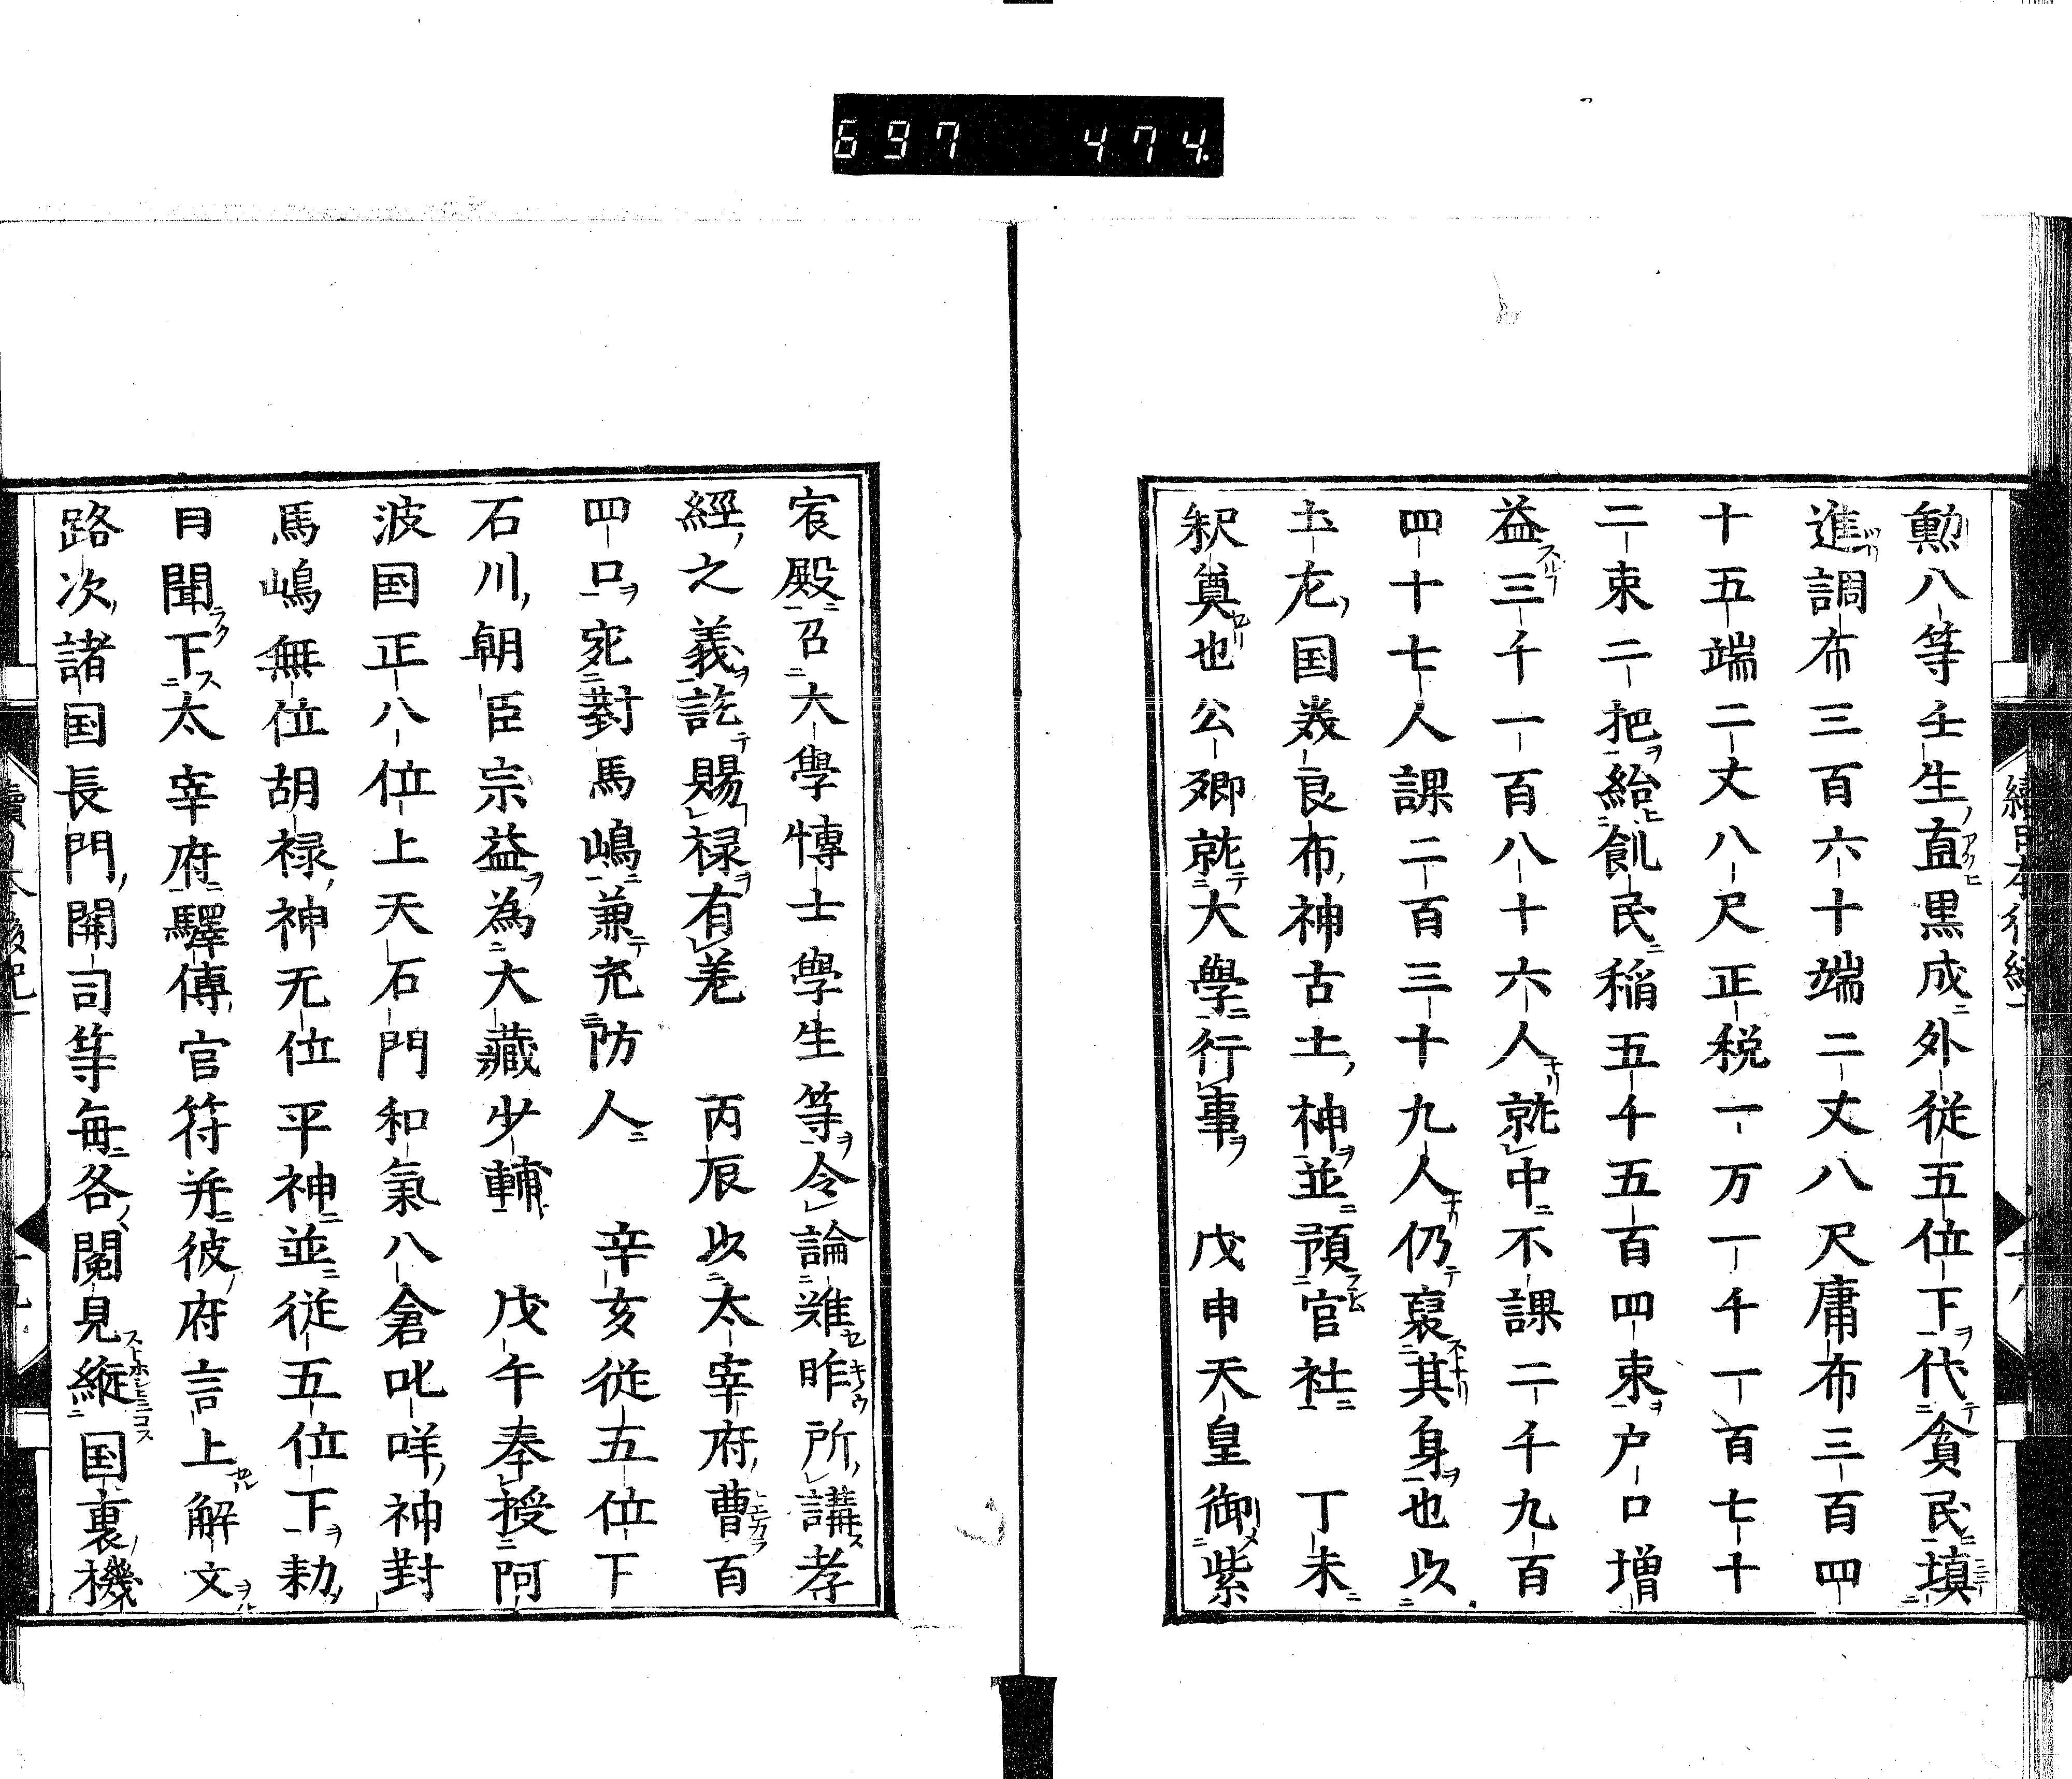 697 474
勲八等壬生直黒成外従五位下代貧民填
進調布三百六十端二丈八尺庸布三百四
十五端二丈八尺正税一万一千一百七十
二束二把給飢民稲五千五百四束戸口増
益三千一百八十六人就中不課二千九百
四十七人課二百三十九人仍褒其身也以
土左国美良布神古土神並預官社丁未
釈奠也公卿就大學行事戊申天皇御紫
宸殿召大學博士學生等令論難昨所講孝
經之義訖賜禄有差丙辰以太宰府曹百
四口宛對馬嶋兼充防人辛亥従五位下
石川朝臣宗益為大藏少輔戊午奉授阿
波国正八位上天石門和氣八倉叱咩神對
馬嶋無位胡禄神无位平神並従五位下勅
月聞下太宰府驛傳官符并彼府言上解文
路次諸国長門開司等毎各閲見縦国裏機